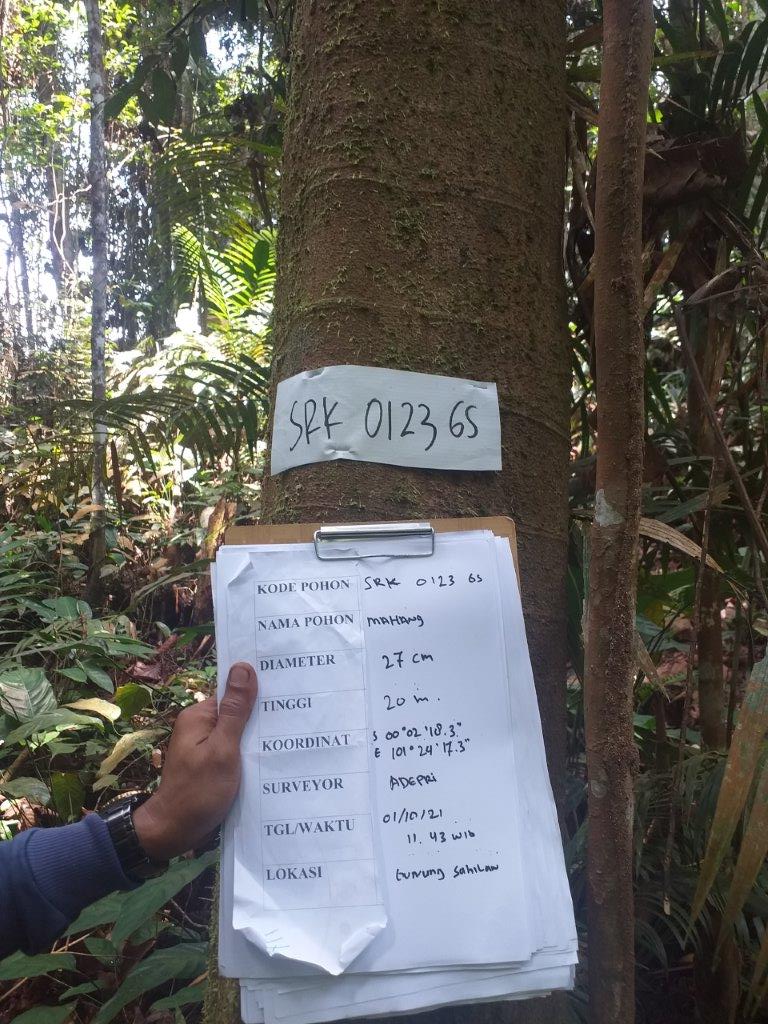 SRK 0123 GS
KODE POHON SRK 0123 GS
NAMA POHON MAHANG
DIAMETER 27 cm
TINGGI 20 m.
KOORDINAT S 00°02'18.3"
E 101°24'17.3"
SURVEYOR ADEPRI
TGL/WAKTU 01/10/21
11.43 WIB
LOKASI Gunung Sahilan